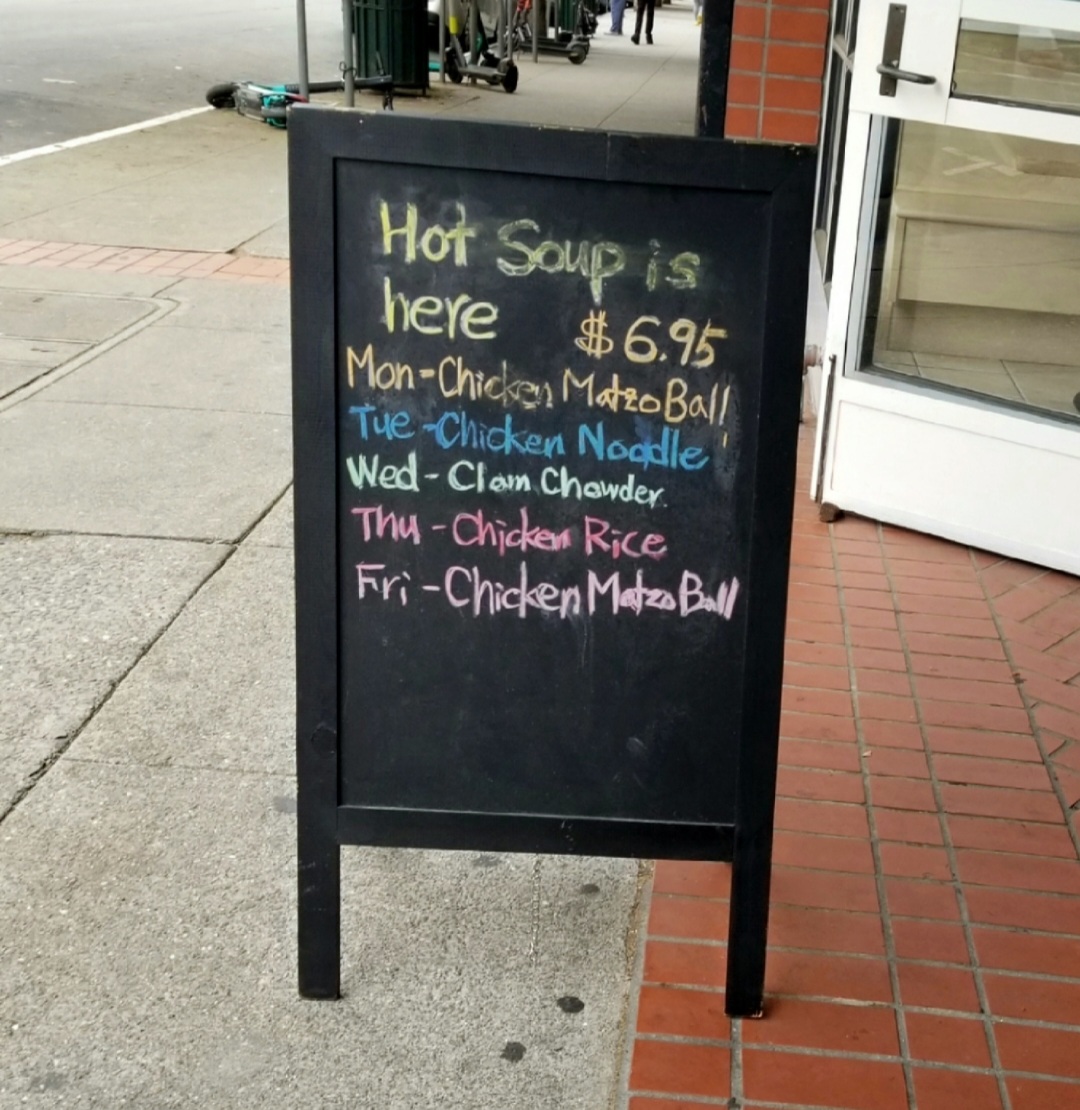 Hot Soup is
here $6.95
Mon-Chicken Matzo Ball
Tue-Chicken Noodle
Wed-Clam Chowder
Thu-Chicken Rice
Fri-Chicken Matzo Ball